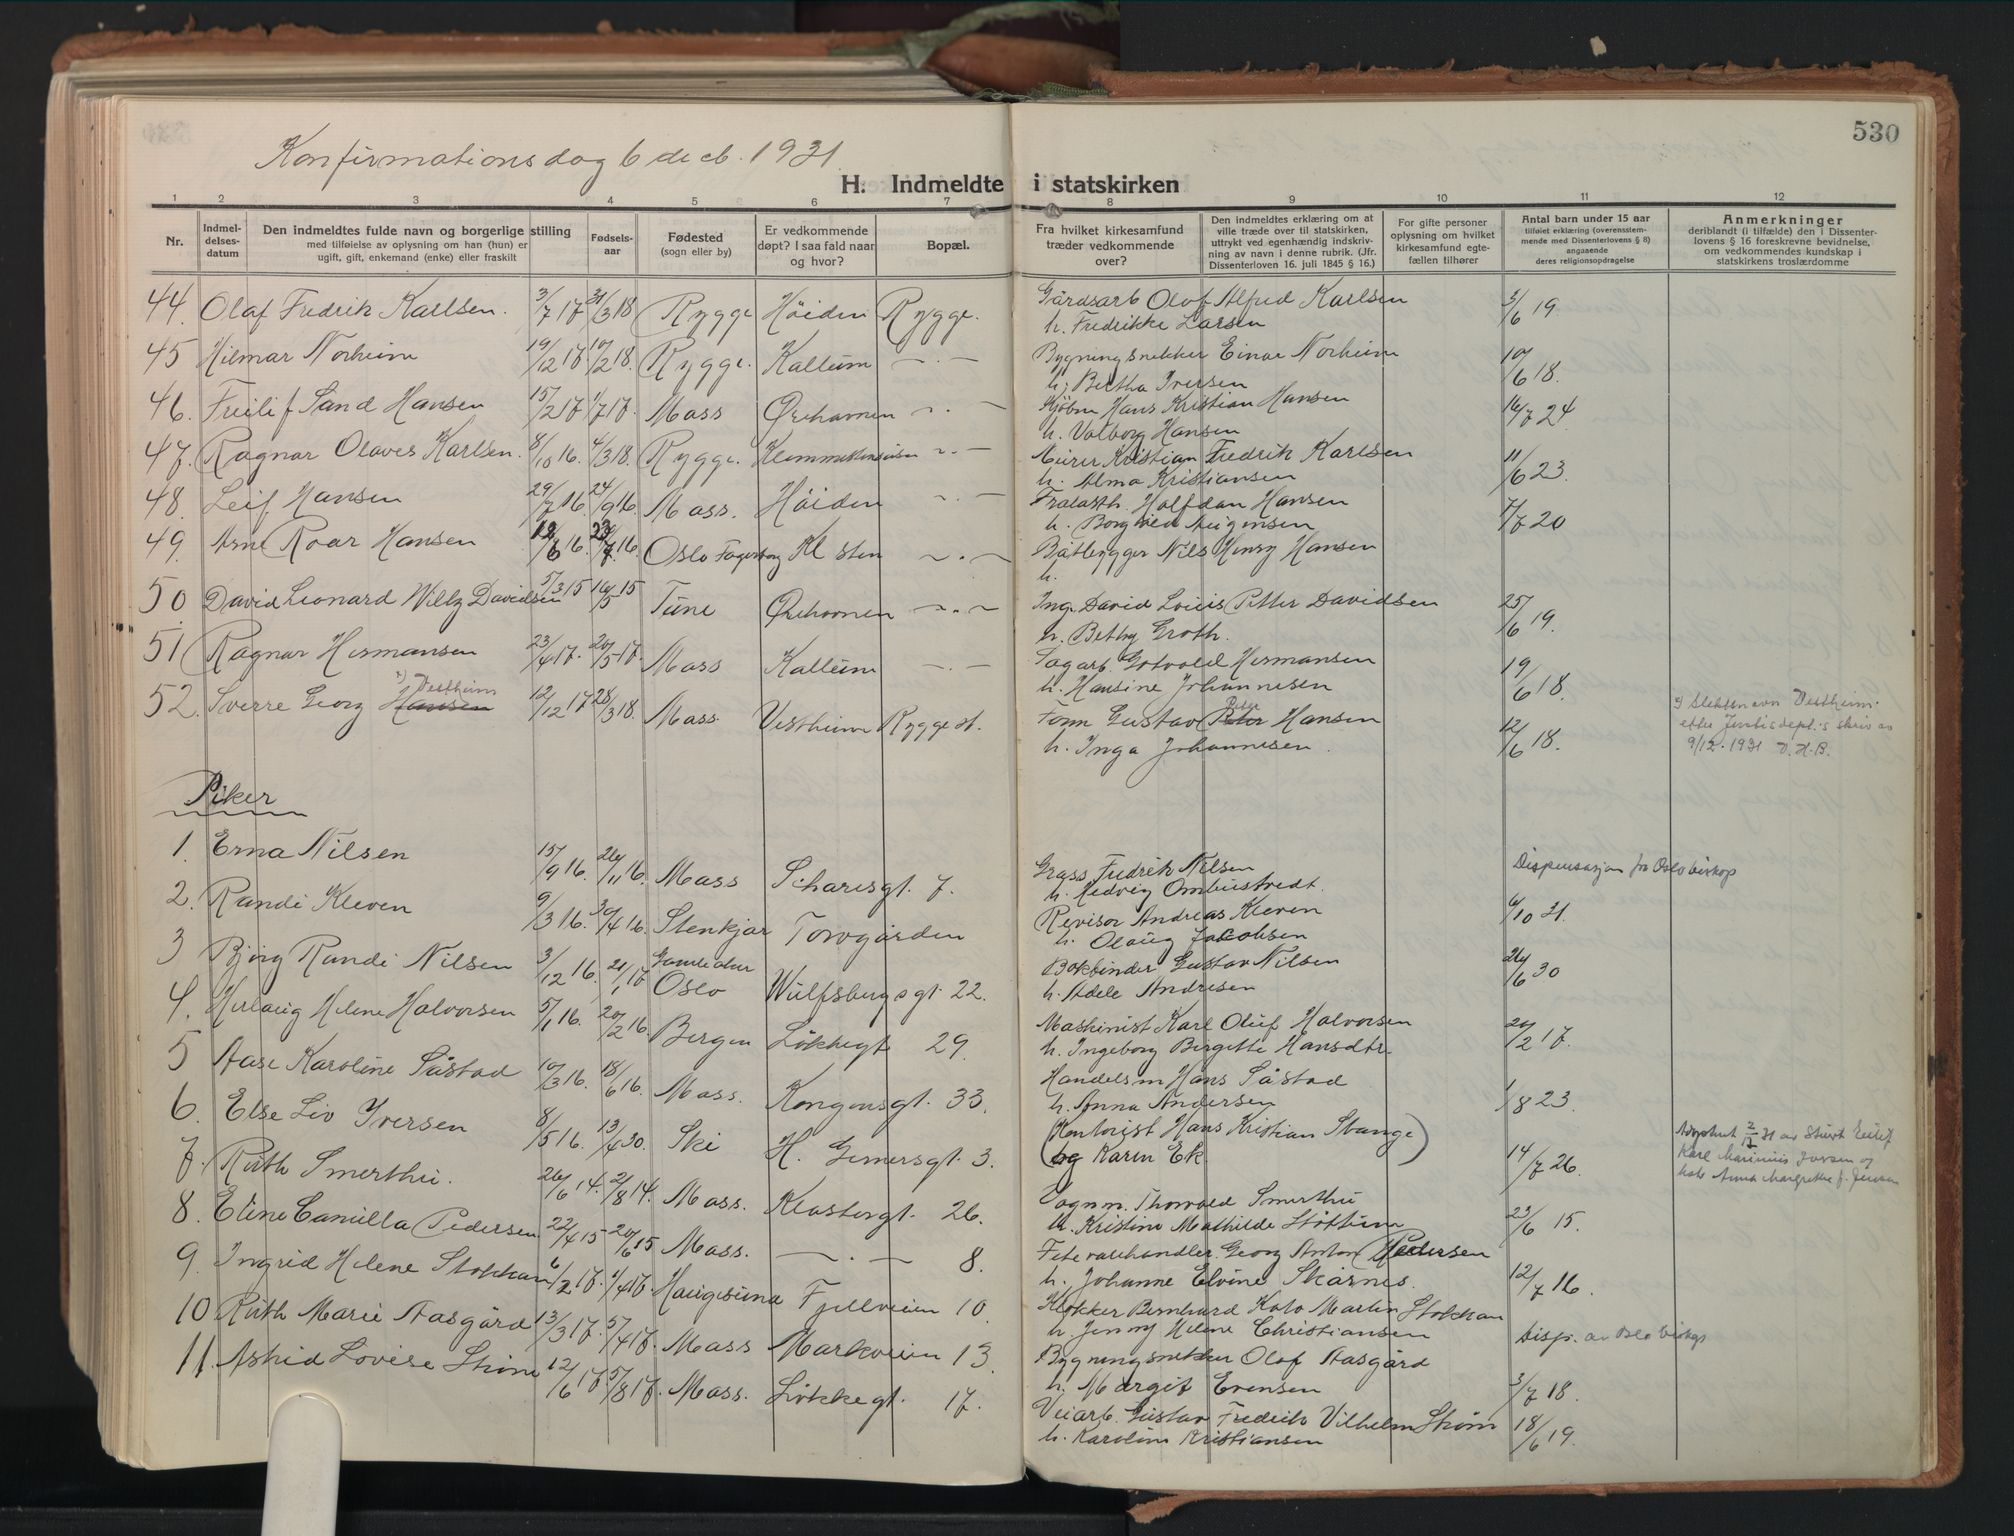 530
Konfirmationsdag 6 decb. 1931
H. Indmeldte i statskirken
1 2 3 4 5 6 7 8 9 10 11 12
Nr.
Indmel-
delses-
datum
Den indmeldtes fulde navn og borgerlige stilling
med tilføielse av oplysning om han (hun) er
ugift, gift, enkemand (enke) eller fraskilt
Fødsels-
aar
Fødested
(sogn eller by)
Er vedkommende
døpt? I saa fald naar
og hvor?
Bopæl.
Fra hvilket kirkesamfund
træder vedkommende
over?
Den indmeldtes erklæring om at
ville træde over til statskirken,
uttrykt ved egenhændig indskriv-
ning av navn i denne rubrik. (Jfr.
Dissenterloven 16. juli 1845 § 16.)
For gifte personer
oplysning om hvilket
kirkesamfund egte-
fællen tilhører
Antal barn under 15 aar
tilføiet erklæring (overensstem-
mende med Dissenterlovens § 8)
angaaende
deres religionsopdragelse
Anmerkninger
deriblandt (i tilfælde) den i Dissenter-
lovens § 16 foreskrevne bevidnelse,
om vedkommendes kundskap i
statskirkens troslærdomme
44. Olaf Fredrik Karlsen. 3/7 17 31/3 18 Rygge Höiden Rygge. Gårdsarb Olaf Alfred Karlsen 3/6 19.
h. Fredrikke Larsen
45 Hilmar Norheim 19/12 17. 10/2 18. Rygge. Kallum —·— Bygningsnekker Einar Norheim 10/6 18.
h. Bertha Iversen
46. Freilif Sand Hansen 15/2 17 1/7 17. Moss Ørehavnen —·— Kjöbm Hans Kristian Hansen 16/7 24
h. Valborg Hansen
47. Ragnar Olaves Karlsen. 8/10 16. 4/3 18. Rygge. —·— Murer Kristian Fredrik Karlsen 11/6 23.
h. Alma Kristiansen
48. Leif Hansen 29/7 16. 24/9 16. Moss. Höiden —·— Halfdan Hansen 7/7 20
h. Borghild
49. Arne Roar Hansen 12/6 16. 23/7 16. Oslo Fagerborg Kl sten —·— Båtbygger Nils Henry Hansen
h.
50 David Leonard Willy Davidsen 5/3 15 16/5 15 Tune Ørehavnen —·— Ing. David Louis Petter Davidsen 25/6 19.
h. Betty Groth.
51 Ragnar Hermansen 23/4 17. 20/5 17. Moss Kallum —·— Sagarb. Gotvald Hermansen 19/6 18.
h. Hansine Johannesen
52. Sverre Georg Hansen x) Vestheim 12/12 17 28/3 18. Moss. Vestheim Rygge st. Form Gustav Peter Hansen 12/6 18.
h. Inga Johannesen.
x) Slektsnavn Vestheim.
efter Justisdept.s skriv av
9/12. 1931 D.H.B.
Piker
1. Erna Nilsen 15/9 16. 26/11 16. Moss Scharesgt. 7. Grass. Fredrik Nilsen Dispensasjon fra Oslo biskop
h. Hedvig Ombustvedt.
2. Randi Kleven 9/3 16. 30/4 16. Stenkjær Torvgården Revisor Andreas Kleven 4/10 31.
h. Olaug Jacobsen
3 Bjørg Randi Nilsen 3/12 16. 21/1 17 Gamle Aker Oslo Wulfsbergsgt. 22. Bokbinder Gustav Nilsen 26/6 30
h. Adele Andresen
4. Herlaug Helene Halvorsen 5/1 16. 20/2 16. Bergen Løkkegt 29. Maskinist Karl Oluf Halvorsen 20/2 17.
h. Ingeborg Birgette Hansdtr.
5 Aase Karoline Såstad 10/3 16. 18/6 16. Moss. Kongensgt. 33. Handelsm Hans Såstad 1/8 23.
h. Anna Andersen
6. Else Liv Iversen 8/5 16. 13/4 30. Ski H. Gernersgt. 3. (Kontorist Hans Kristian Stange 14/7 26.
og Karen Ek.)
Adoptert 2/12 31 av Karl Marinius Jensen og
hustr Anna Margrethe f. Jensen
7. Ruth Smerthu. 26/6 14. 2/8 14. Moss. Klostergt. 26. Vognm. Thorvald Smerthu 23/6 15.
h. Kristine Mathilde Støttum
8. Eline Camilla Pedersen 22/4 15 20/6 15 Moss. —·— 8. Fetevarehandler. Georg Anton Pedersen 12/7 16.
h. Johanne Elvine Skarnes.
9. Ingrid Helene Stokkan 6/2 17. 1/4 17. Haugesund Fjellveien 10. Klokker Bernhard Kato Martin Stokkan Disp. av Oslo biskop
h. Jenny Helene Christiansen
10 Ruth Marie Aasgård 13/3 17. 5/4 17. Moss Markveien 13. Bygningsnekker Olaf Aasgård 3/7 18.
h. Margit Evensen
11. Astrid Lovise Ström 12/6 17 5/8 17. Moss. Løkkegt. 17. Veiarb. Gustav Fredrik Vilhelm Ström 18/6 19.
h. Karoline Kristiansen